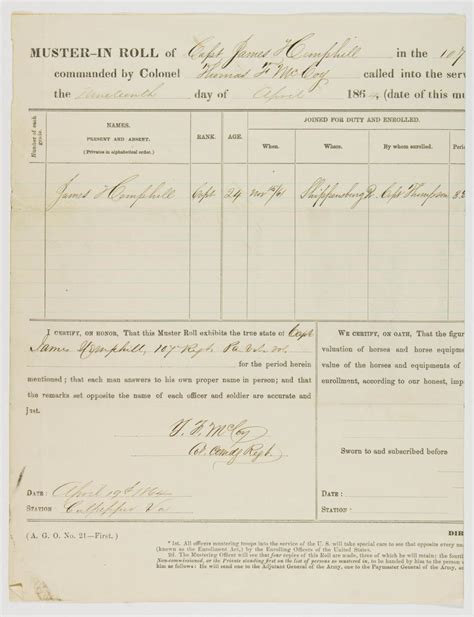 MUSTER-IN ROLL of Capt James H Hemphill in the 107
commanded by Colonel Thomas F McCoy called into the serv
the nineteenth day of April 1864, (date of this mu
Number of each grade.
NAMES.
PRESENT AND ABSENT.
(Privates in alphabetical order.)
RANK.
AGE.
JOINED FOR DUTY AND ENROLLED.
When.
Where.
By whom enrolled.
Perio
James H Hemphill Capt 24 Shippensburg Pa Capt Thompson
I CERTIFY, ON HONOR, That this Muster Roll exhibits the true state of Capt
James Hemphill, 107 Regt Pa V.
for the period herein
mentioned; that each man answers to his own proper name in person; and that
the remarks set opposite the name of each officer and soldier are accurate and
just.
T. F. McCoy
Col. Comdg Regt.
DATE: April 19th 1864
STATION: Culpepper Va
WE CERTIFY, ON OATH, That the figur
valuation of horses and horse equipme
value of the horses and equipments of
enrollment, according to our honest, imp
Sworn to and subscribed before
(A. G. O. No. 21—First.)
DIR
*1st. All officers mustering troops into the service of the U. S. will take special care to see that opposite every na
(known as the Enrollment Act,) by the Enrolling Officers of the United States.
2d. The Mustering Officer will see that four copies of this Roll are made, three of which he will retain; the fourth
Non-commissioned, or the Private standing first on the list of persons to be mustered in, to be handed by him to the person
him as follows: He will send one to the Adjutant General of the Army, one to the Paymaster General of the Army, an